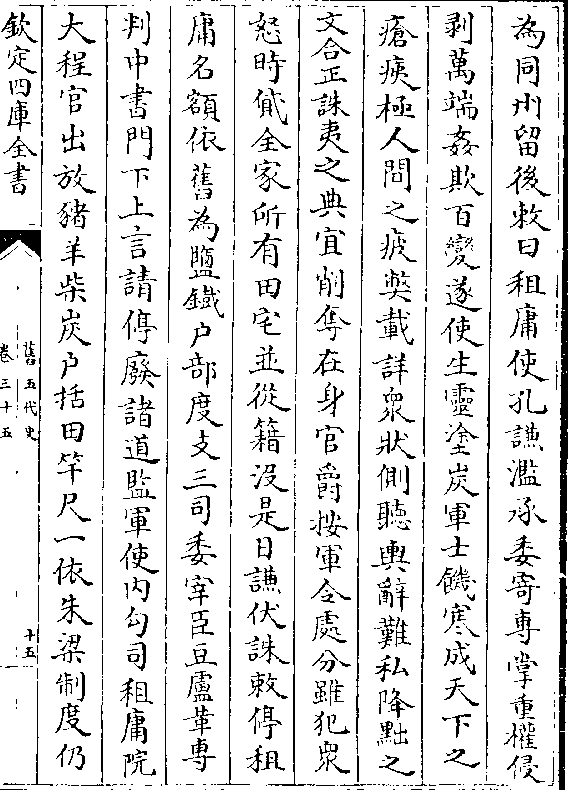 為同州留後敕曰租庸使孔謙濫承委寄專掌重權侵
剥萬端姦欺百變遂使生靈塗炭軍士饑寒成天下之
瘡痍極人間之疲弊載詳衆狀側聽輿辭難私降黜之
文合正誅夷之典宜削奪在身官爵按軍令處分雖犯衆
怒時貸全家所有田宅並從籍沒是日謙伏誅敕停租
庸名額依舊為鹽鐵户部度支三司委宰臣豆盧革專
判中書門下上言請停廢諸道監軍使内勾司租庸院
大程官出放豬羊柴炭户括田竿尺一依朱梁制度仍
欽定四庫全書
舊五代史
卷三十五
十五